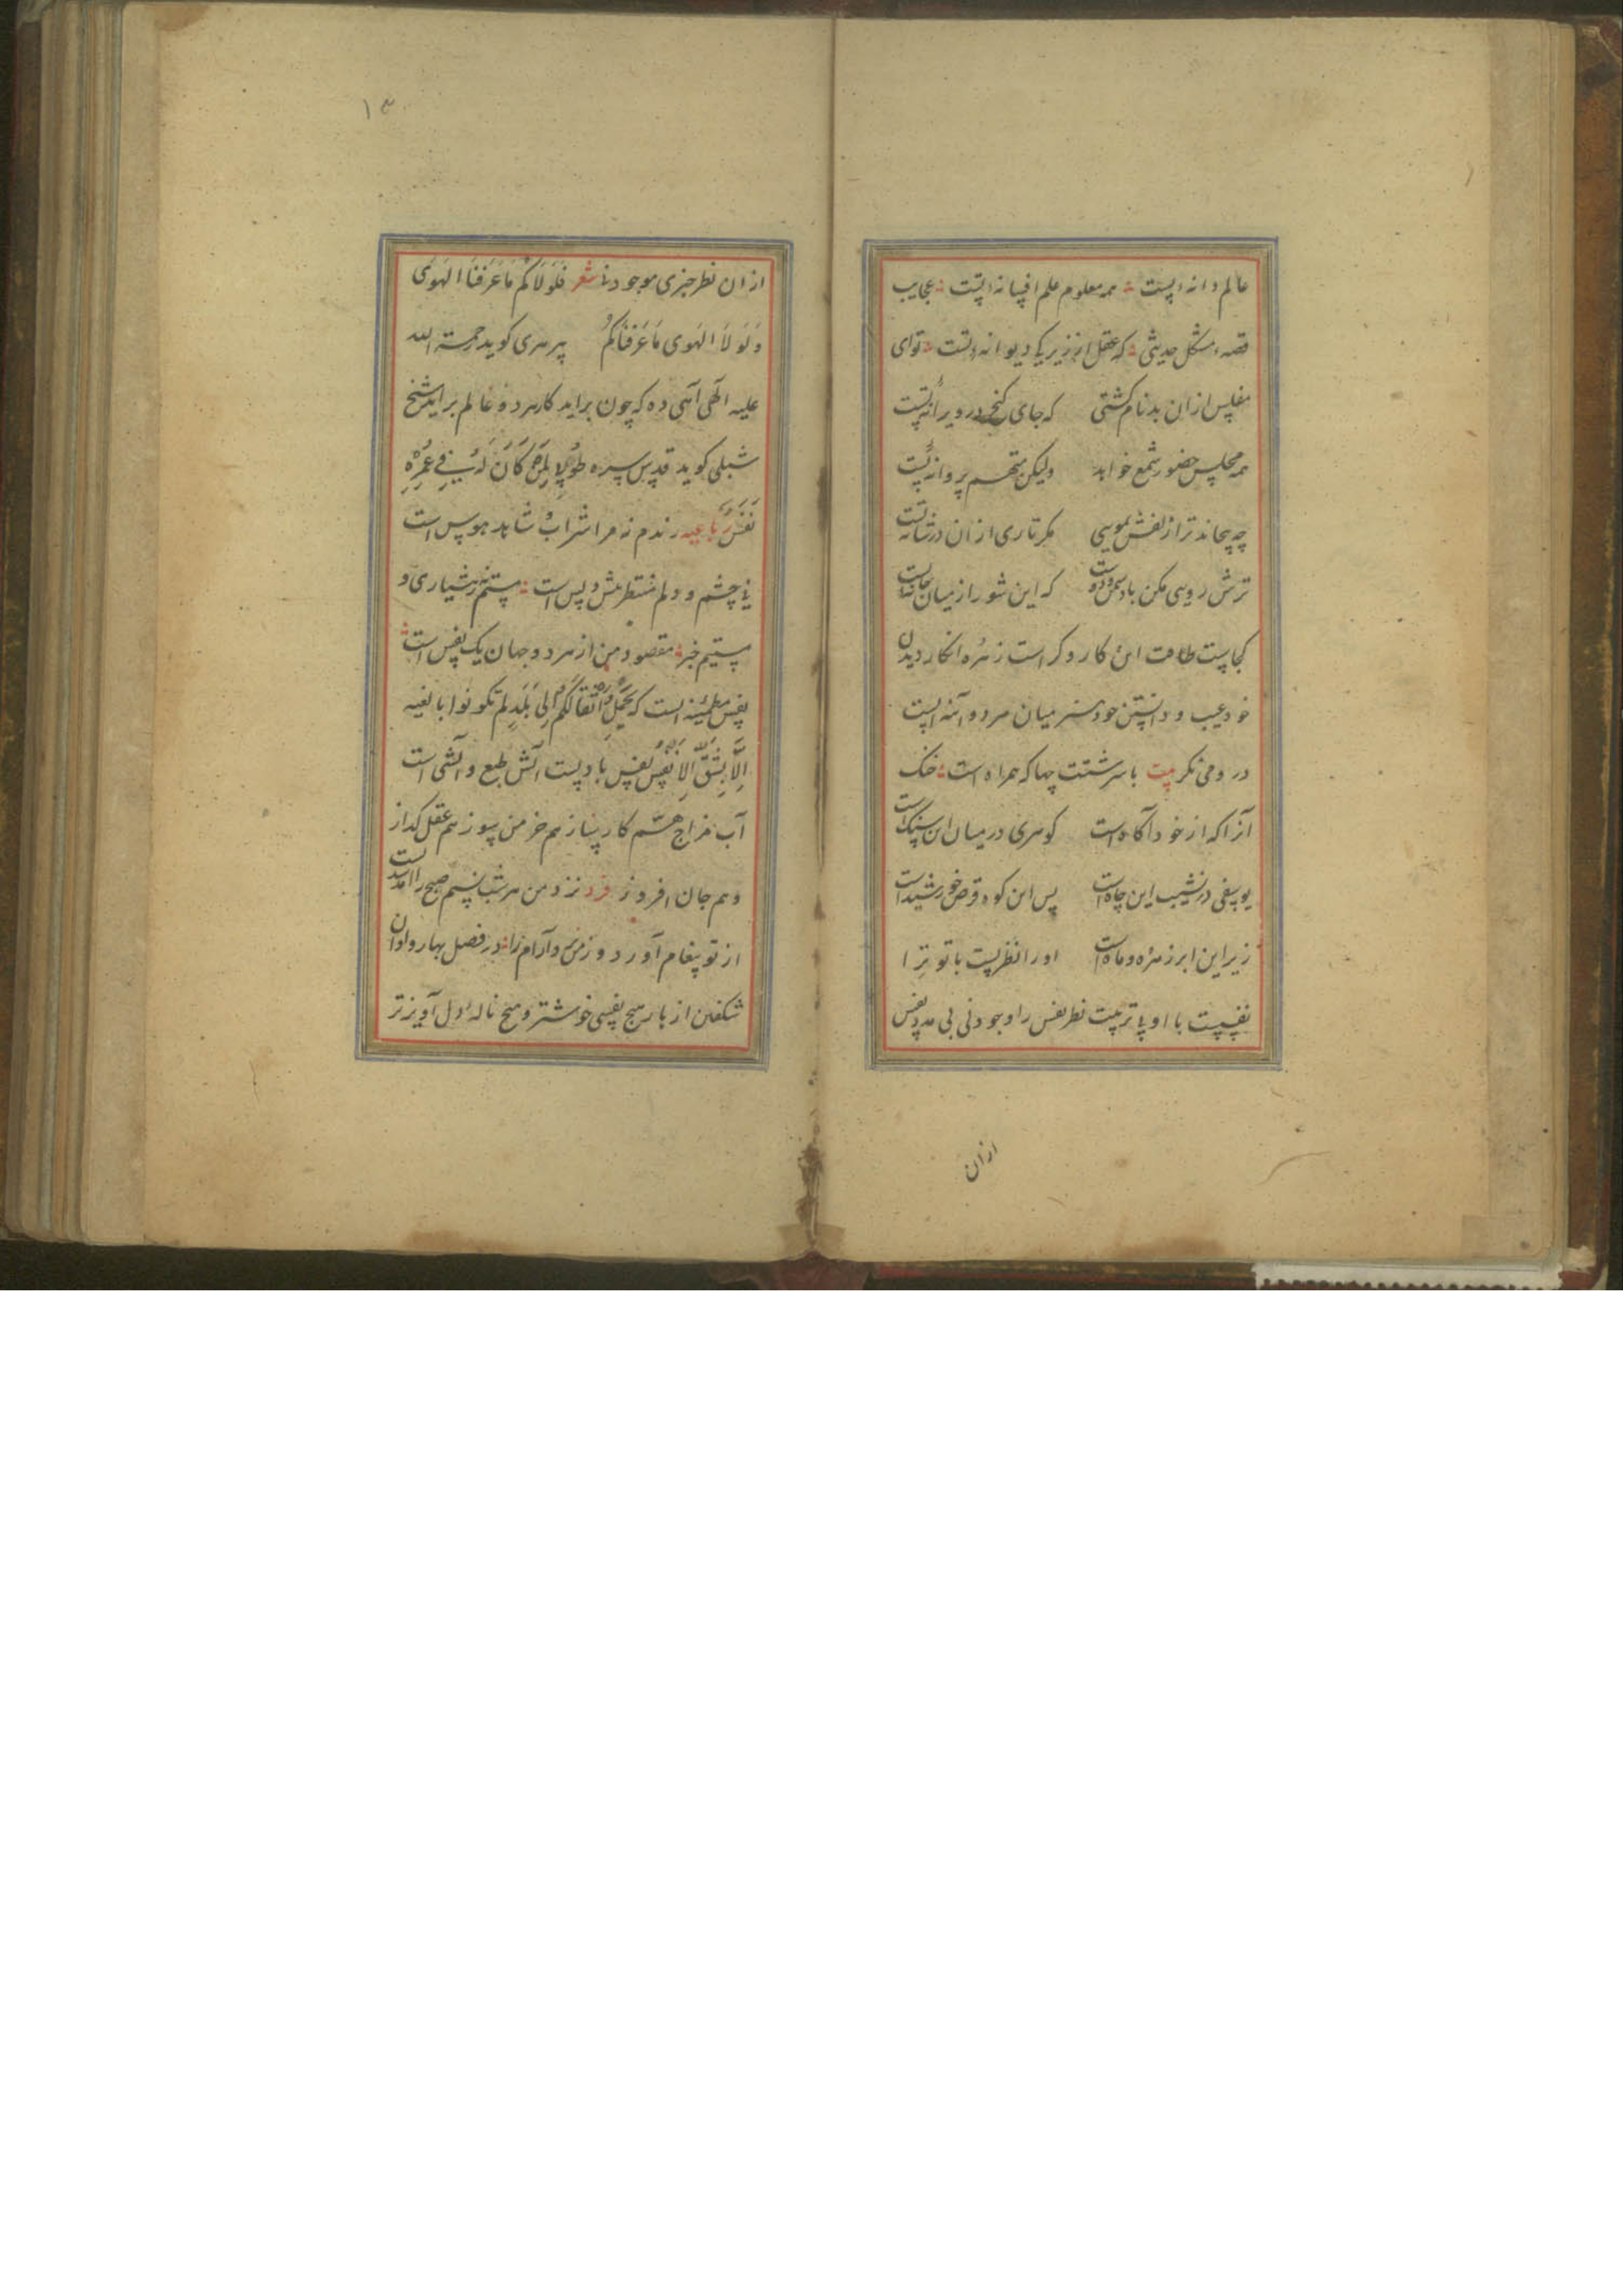 عالم دانه است همه معلوم علم افسانه است عجایب
قصه مشکل حدیثی که عقل از زیرکی دیوانه است توای
مفلس ازان بدنام کشتی که جای کنج در ویرانه است
همه مجلس حضور شمع خواهد ولیکن متهم پروانه است
چه پیچاند ترا زلفش بمویی مکر تاری ازان در شانه است
ترش رویی مکن که این شور از میان
کجاست طاقت این کار و کراست زهره انکار دیدن
خود عیب و دانستن خود هنر میان مرد و آئنه است
در و می نکر بیت با سرشتت چها که همراه است خنک
آنرا که از خود آکاه است کوهری در میان این سنک است
یوسفی در نشیب این چاه است پس این کوه قرص خورشید است
زیر این ابر زهره و ماه است او را نظریست با تو ترا
نفسیست با او با تربیت نظر نفس را وجود نی بی مدد نفس
ازان
۱۳
ازان نظر چیزی موجود نا شعر فَلَولاکُم مَا عَرَفنَا الهَوَی
وَلَولَا الهَوَی مَا عَرَفنَاکُم پیر هری کوید رحمة الله
علیه الهی آهی ده که چون براید کار هر دو عالم براید شیخ
شبلی کوید قدس سره طُوبی لِمَن کَانَ لَهُ فِی عُمرِهِ
نَفَسٌ رباعیه رندم نه مرا شراب و شاهد هوس است
نی چشم و دلم منتظر پیش و پس است مستم نه ز هشیاری و
مستیم خبر مقصود من از هر دو جهان یک نفس است
نفس مطمئنه است که تَحمِلُ اَثقَالَکُم اِلی بَلَدٍ لَم تکونوا بالغیه
اِلَّا بِشِقِّ الاَنفُس نفس بادیست آتش طبع و آتشی است
آب مزاج هم کار ساز هم خرمن سوز هم عقل کداز
و هم جان افروز فرد نزد من هر شب نسیم صبح را
از تو پیغام آورد و ز من آرام را در فصل بهار و اوان
شکفتن ازهار هیچ نفسی خوشتر و هیچ ناله دل آویزتر